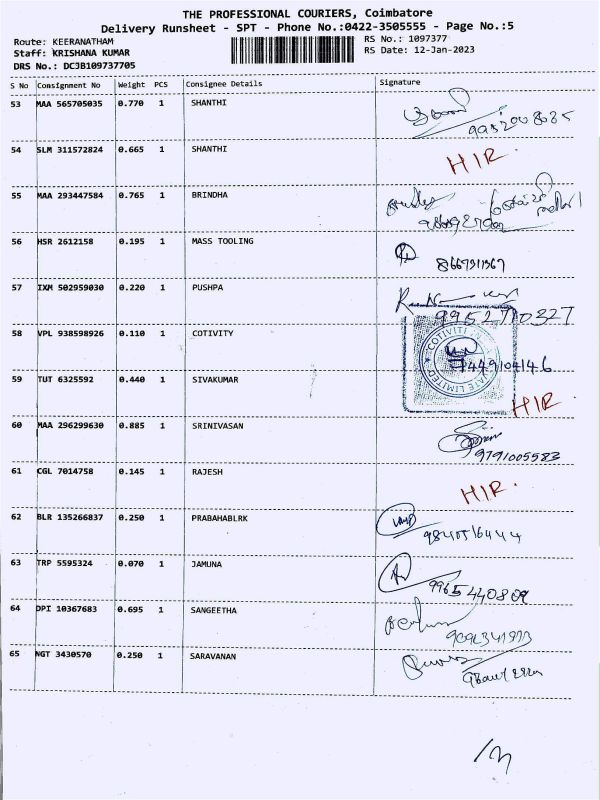 THE PROFESSIONAL COURIERS, Coimbatore
Delivery Runsheet - SPT - Phone No.:0422-3505555 - Page No.:5
Route: KEERANATHAM
RS No.: 1097377
Staff: KRISHANA KUMAR
RS Date: 12-Jan-2023
DRS No.: DCJB109737705
S No Consignment No Weight PCS Consignee Details Signature
53 MAA 565705035 0.770 1 SHANTHI
54 SLM 311572824 0.665 1 SHANTHI HIR.
55 MAA 293447584 0.765 1 BRINDHA
56 HSR 2612158 0.195 1 MASS TOOLING
57 IXM 502959030 0.220 1 PUSHPA 9952710327
58 VPL 938598926 0.110 1 COTIVITY 7449104146
COTIVITI LIMITED
59 TUT 6325592 0.440 1 SIVAKUMAR HIR.
60 MAA 296299630 0.885 1 SRINIVASAN 9791005583
61 CGL 7014758 0.145 1 RAJESH HIR.
62 BLR 135266837 0.250 1 PRABAHABLRK 9840516444
63 TRP 5595324 0.070 1 JAMUNA 9965440809
64 DPI 10367683 0.695 1 SANGEETHA
65 NGT 3430570 0.250 1 SARAVANAN